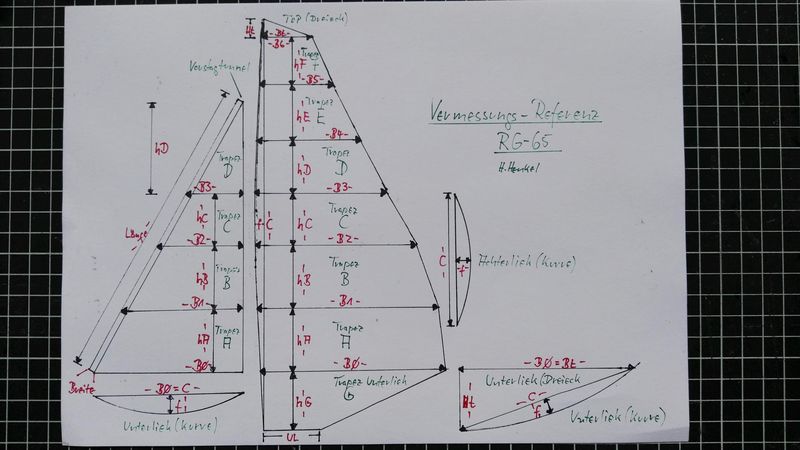 TOP (Dreieck)
Ht
-Bt-
-B6-
Trapez
F
hF
-B5-
Vorstagtunnel
Trapez
E
hE
-B4-
Vermessungs-Referenz
RG-65
H. Henkel
hD
Trapez
D
hD
Trapez
D
-B3-
-B3-
Länge
hC
Trapez
C
f-C
hC
Trapez
C
-B2-
-B2-
C
f
Achterliek (Kurve)
hB
Trapez
B
hB
Trapez
B
-B1-
-B1-
hA
Trapez
A
hA
Trapez
A
-BØ-
-BØ-
-BØ=Bt-
Breite
-BØ=C-
f
Unterliek (Kurve)
hG
Trapez Unterliek
G
UL
Unterliek (Dreieck
Ht
-C-
f
Unterliek (Kurve)